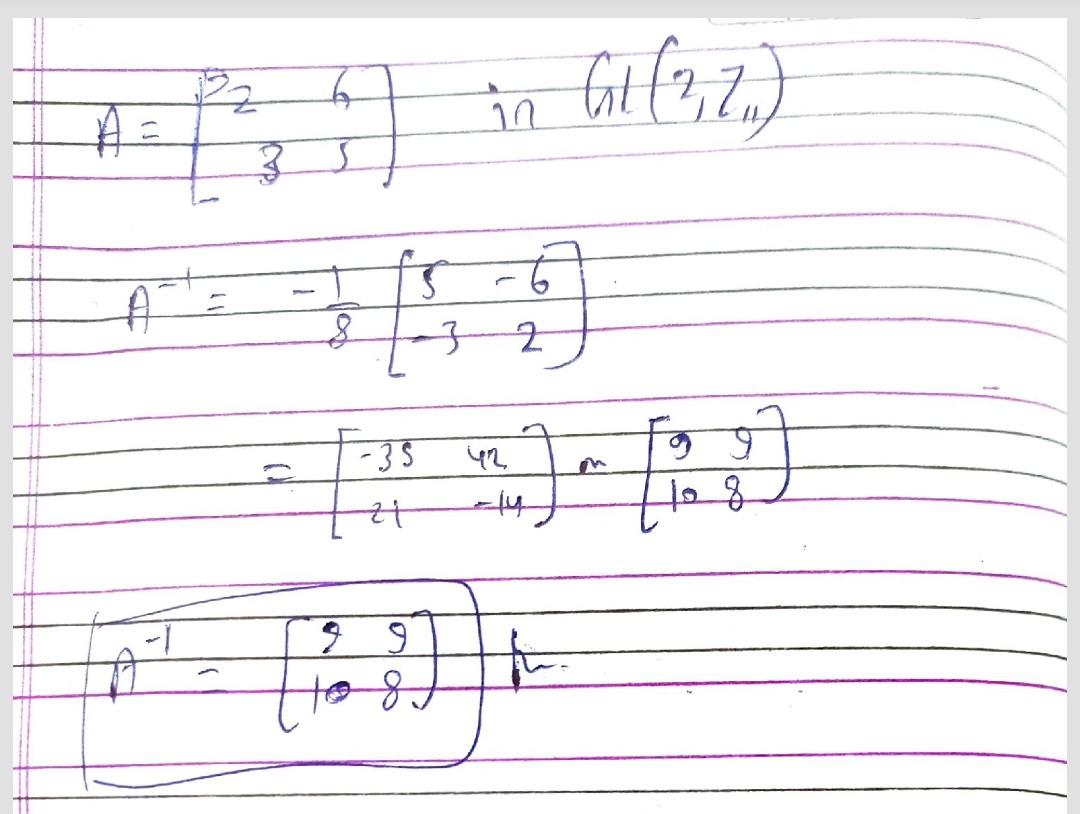 A = [2 6
3 5] in GL(2, Z11)
A^-1 = -1/8 [5 -6
-3 2]
= [-35 42
21 -14] or [9 9
10 8]
A^-1 = [9 9
10 8]